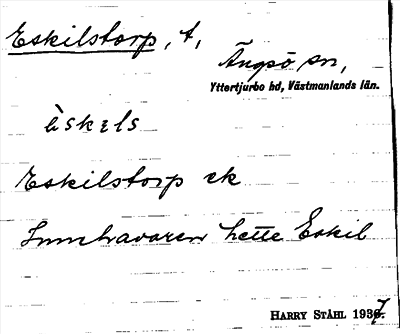 Eskilstorp, t,
Ängsö sn,
Yttertjurbo hd, Västmanlands län.
èskɛls
Eskilstorp ek
Innehavaren hette Eskil
HARRY STÅHL 1937.